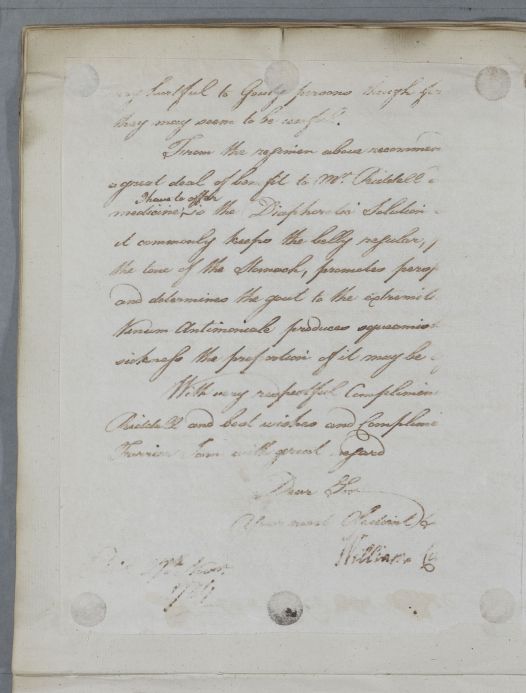 very hurtful to Gouty persons though for
they may seem to be useful.
From the regimen above recommen
a great deal of benefit to Mr. Riddell
I have to offer
medicine, is the Diaphoretic Solution
it commonly keeps the belly regular,
the tone of the Stomach, promotes persp
and determines the gout to the extremit
Vinum Antimoniale produces squeamish
sickness the proportion of it may be
With very respectful Complimen
Riddell and best wishes and Complime
I am with great regard
Dear Sir
Your most Obedient
William C